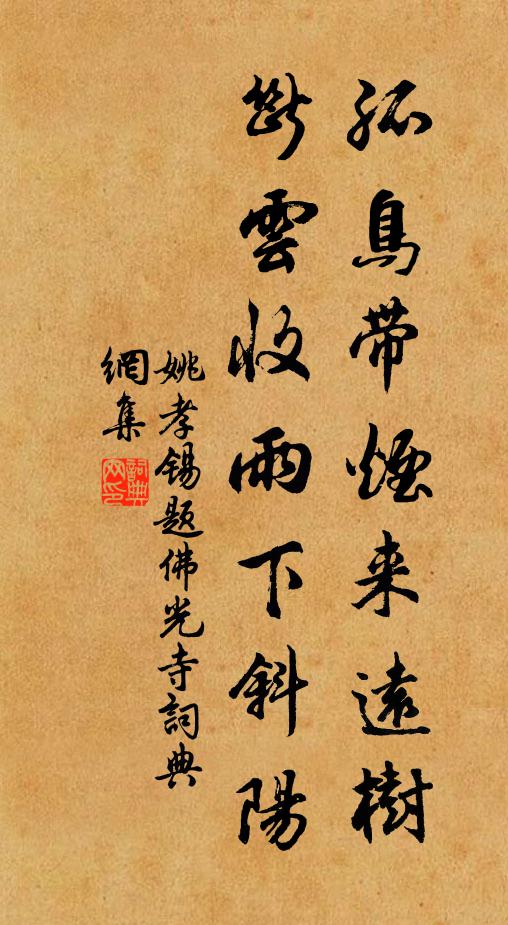 孤鳥帶煙来遠樹
斷雲收雨下斜陽
姚孝锡题佛光寺詞典
網集
詞典网印